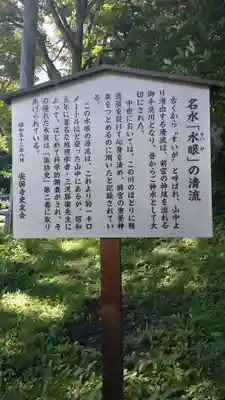 名水「水眼」の清流
すいが
古くから「すいが」と呼ばれ、山中よ
り湧出する清流は、前宮の神域を流れる
御手洗川となり、昔から「神水」として大
切にされた。
中世においては、この川のほとりに精
進屋を設けて心身を清め、前宮の重要神
事をつとめるのに用いたと記録されてい
る。
この水眼の源流は、これより約一キロ
メートルほど登った山中にあるが、昭和
五年に著名な地理学者・三沢勝衛先生に
よって、はじめて科学的調査がされ、そ
の優れた水質は「諏訪史」第二巻に取り
あげられている。
昭和五十三年八月
安国寺史友会